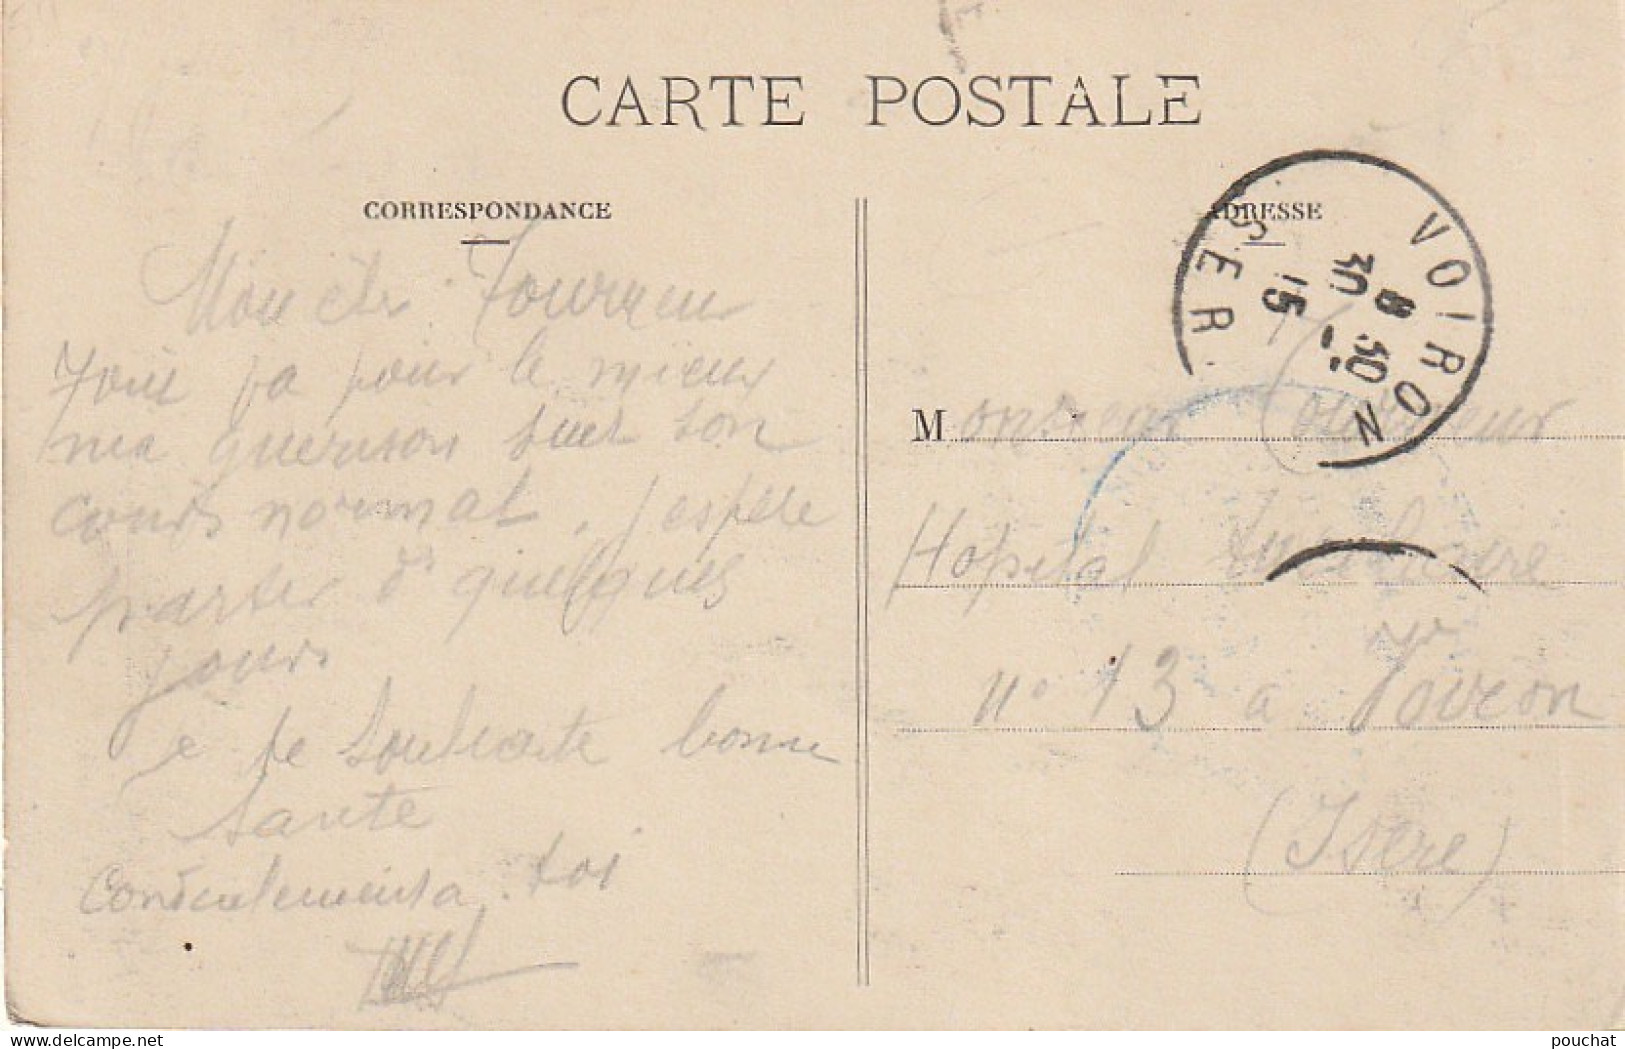 CARTE POSTALE
CORRESPONDANCE
Mon cher
va pour le mieux
ma guerison suit son
cours normal, j'espère
partir d'i quelques
jours
e te Souhaite bonne
Santé
Cordialement a toi
ADRESSE
VOIRON
ISER
30 - 8
15
30
Monsieur
Hopital
n° 13 a Voiron
(Isere)
delcampe.net
pouchat